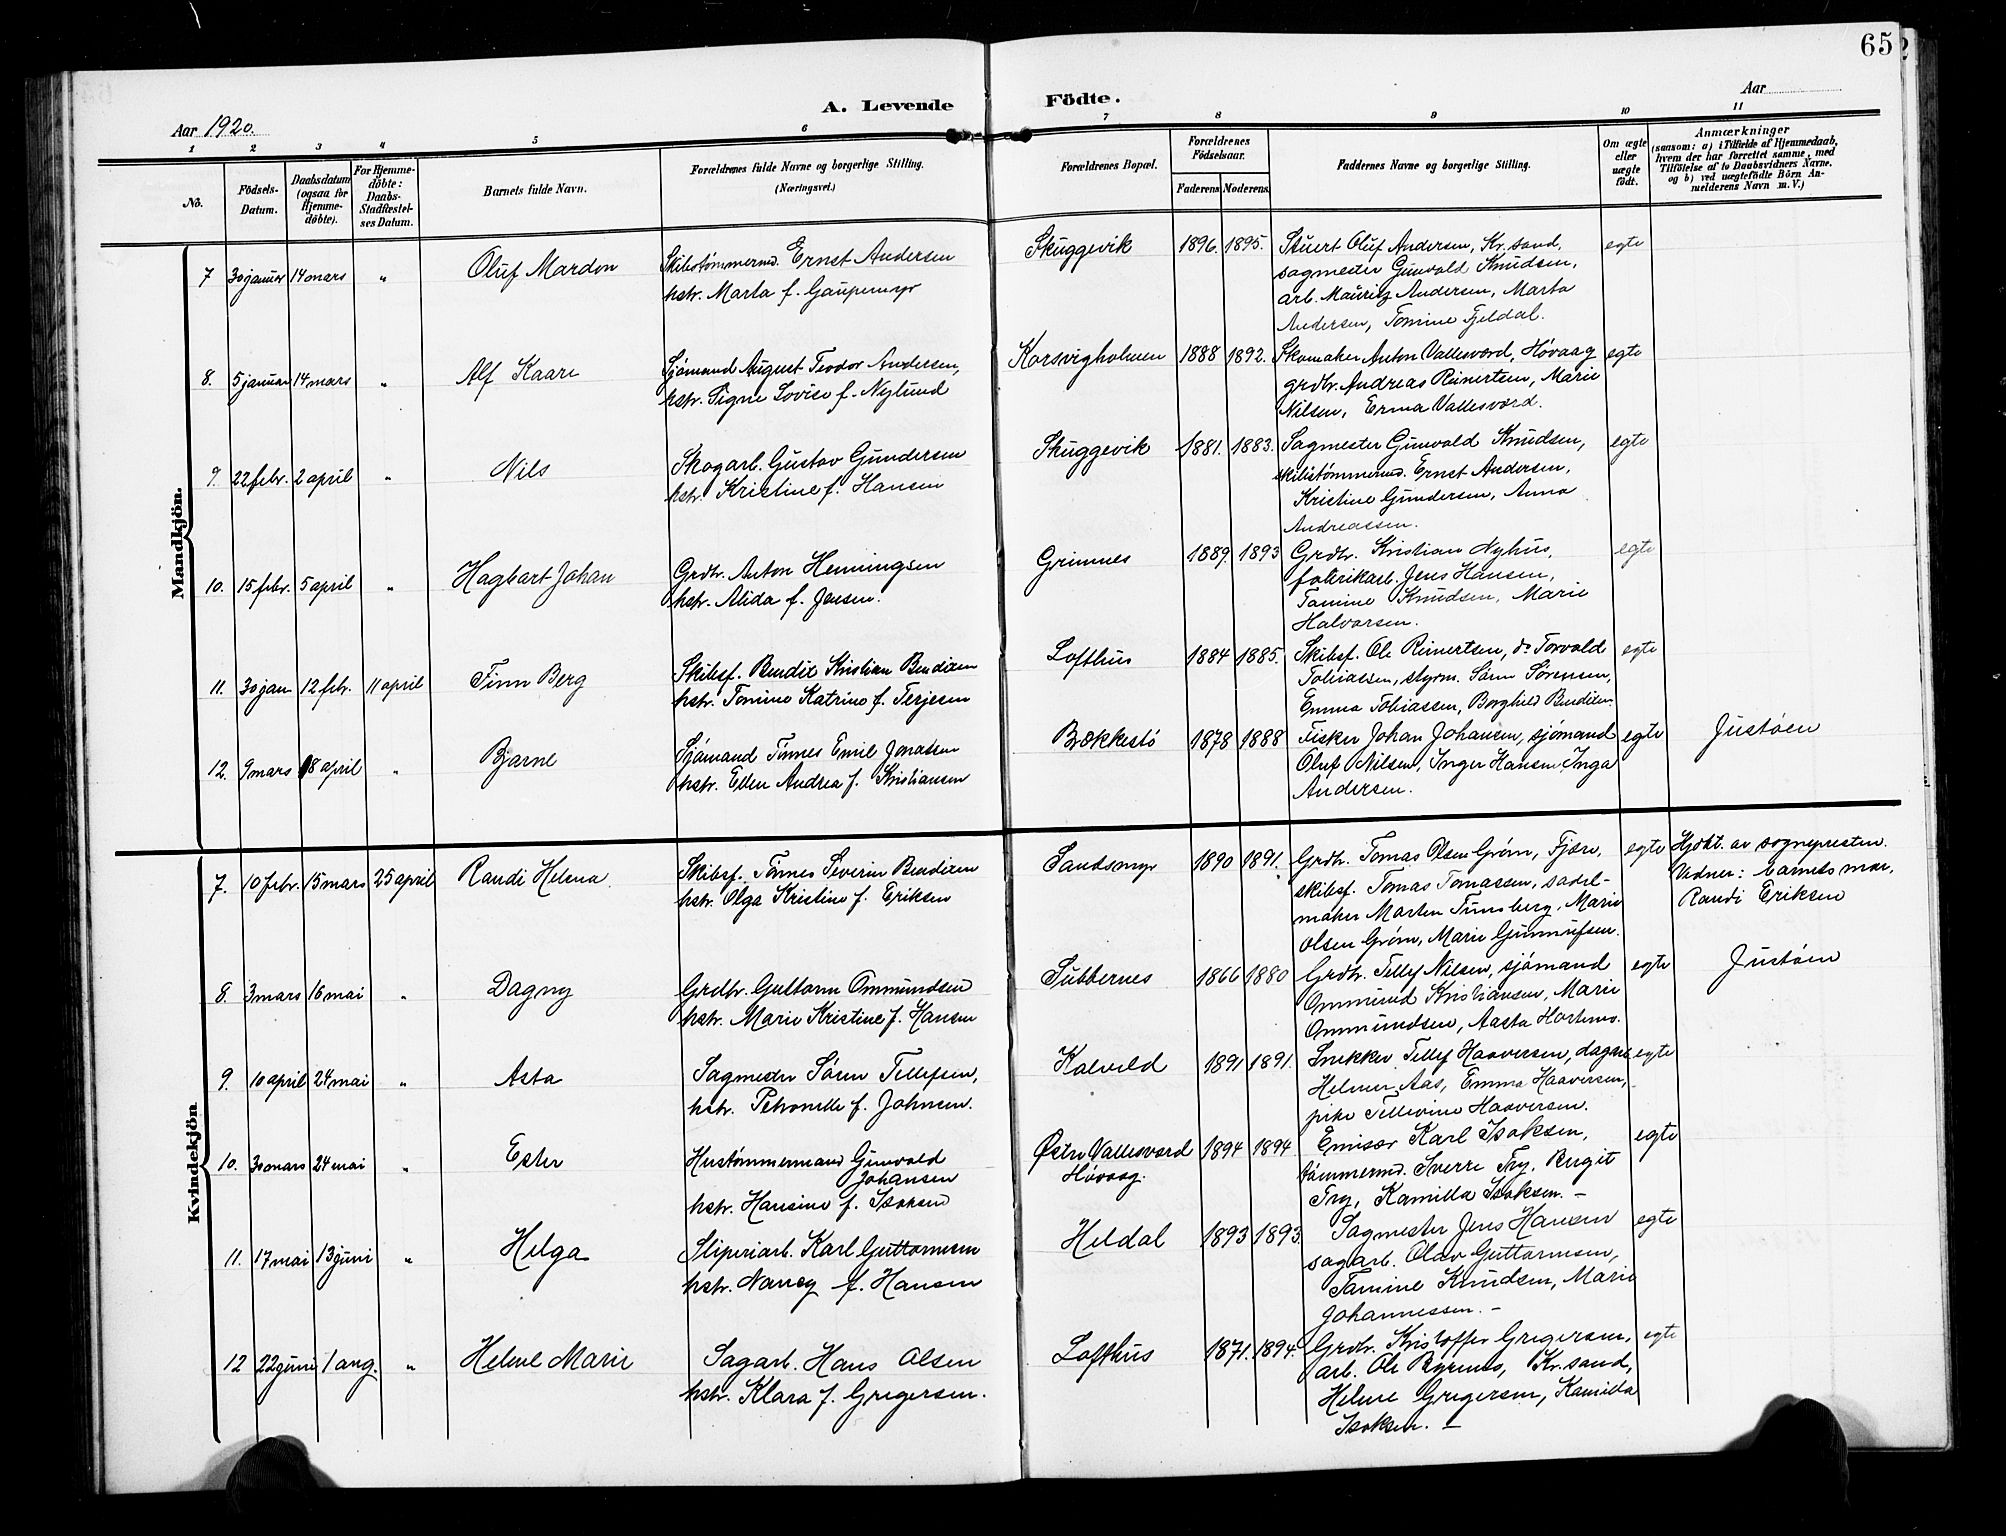 65
A. Levende Födte.
Aar 1920.
Aar
1 2 3 4 5 6 7 8 9 10 11
No.
Födsels-
Datum.
Daabsdatum
(ogsaa for
Hjemme-
döbte).
For Hjemme-
döbte:
Daabs-
Stadfæstel-
ses Datum.
Barnets fulde Navn.
Forældrenes fulde Navne og borgerlige Stilling.
(Næringsvei.)
Forældrenes Bopæl.
Forældrenes
Födselsaar.
Faderens. Moderens.
Faddernes Navne og borgerlige Stilling.
Om ægte
eller
uægte
födt.
Anmærkninger
(saasom: a) i Tilfælde af Hjemmedaab,
hvem der har forrettet samme, med
Tilföielse af to Daabsvidners Navne,
og b) ved uægtefödte Börn An-
melderens Navn m. V.)
Mandkjön.
7 30 januar 14 mars " Oluf Mardon
Skibstømmermd. Ernst Andersen
hstr. Marta f. Gaupemyr
Skuggevik 1896. 1895.
Stuert Oluf Andersen, Kr.sand,
sagmester Gunvald Knudsen,
arb. Mauritz Andersen, Marta
Andersen, Tomine Fjeldal.
egte
8. 5 januar 14 mars " Alf Kaare
Sjømand August Teodor Andersen,
hstr. Signe Lovise f. Nylund
Korsvigholmen 1888 1892.
Skomaker Anton Vallesværd, Høvaag
grdbr. Andreas Reinertsen, Marie
Nilsen, Erma Vallesværd.
egte
9. 22 febr. 2 april " Nils
Skogarb. Gustav Gundersen
hstr. Kristine f. Hansen
Skuggevik 1881. 1883.
Sagmester Gunvald Knudsen,
skibstømmermd. Ernst Andersen,
Kristine Gundersen, Anna
Andreassen.
egte
10. 15 febr. 5 april " Hagbart Johan
Grdbr. Anton Henningsen
hstr. Alida f. Jensen.
Grimnes 1889. 1893
Grdbr. Kristian Nyhus,
fabrikarb. Jens Hansen,
Tomine Knudsen, Marie
Halvorsen.
egte
11. 30 jan 12 febr. 11 april Finn Berg
Skibsf. Bendix Kristian Bendixen
hstr. Tomine Katrine f. Terjesen
Lofthus 1884 1885.
Skibsf. Ole Reinertsen, do Torvald
Tobiassen, styrm. Sørn Sørensen,
Emma Tobiassen, Borghild Bendixen.
egte
12. 9 mars 18 april " Bjarne
Sjømand Tønnes Emil Jonassen
hstr. Ellen Andrea f. Kristiansen
Brækkestø 1878 1888
Fisker Johan Johansen, sjømand
Oluf Nilsen, Inger Hansen, Inga
Andersen.
egte
Justøen
Kvindekjön
7. 10 febr. 15 mars 25 april Randi Helena.
Skibsf. Tønnes Severin Bendixen
hstr. Olga Kristine f. Eriksen
Sandsmyr 1890 1891.
Grdbr. Tomas Olsen Grøm, Fjære,
skibsf. Tomas Tomassen, sadel-
maker Marten Tunsberg, Marie
Olsen Grøm, Marie Gunnufsen.
egte
Hjdøbt. av sognepresten.
Vidner: barnets mor,
Randi Eriksen
8. 3 mars 16 mai " Dagny
Grdbr. Guttorm Ommundsen
hstr. Marie Kristine f. Hansen
Tubbernes 1866 1880
Grdbr. Tellef Nilsen, sjømand
Ommund Kristiansen, Marie
Ommundsen, Aasta Hortemo.
egte
Justøen
9. 10 april 24 mai " Asta
Sagmester Søren Tellefsen,
hstr. Petronelle f. Johnsen.
Kalveld 1891 1891.
Snekker Tellef Haaversen, dagarb
Helmer Aas, Emma Haaversen,
pike Tellevine Haaversen.
egte
10. 30 mars 24 mai " Ester
Hustømmermand Gunvald
Johansen
hstr. Hansine f. Isaksen
Østre Vallesværd
Høvaag.
1894 1894
Emisær Karl Isaksen,
tømmermd. Sverre Try, Birgit
Try, Kamilla Isaksen. –
egte
11. 17 mai 13 juni " Helga
Sliperiarb. Karl Guttormsen
hstr. Nancy f. Hansen
Heldal 1893 1893.
Sagmester Jens Hansen
sagarb. Olav Guttormsen,
Tomine Knudsen, Marie
Johannessen. –
egte
12 22 juni 1 aug. " Helene Marie
Sagarb. Hans Olsen
hstr. Klara f. Gregersen.
Lofthus 1871. 1894.
Grdbr. Kristoffer Gregersen,
arb. Ole Byrenes, Kr.sand,
Helene Gregersen, Kamilla
Isaksen. –
egte